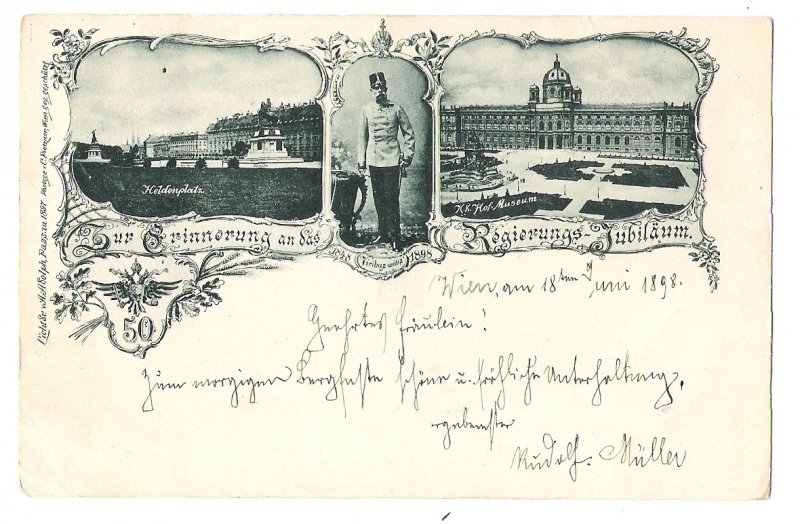 Heldenplatz.
K.k. Hof-Museum
Zur Erinnerung an das Regierungs-Jubiläum.
1848 Viribus unitis 1898
50
Wien, am 18ten Juni 1898.
Geehrtes Fräulein!
Zum morgigen Bergfeste schöne u. fröhliche Unterhaltung,
ergebenster
Rudolf Müller